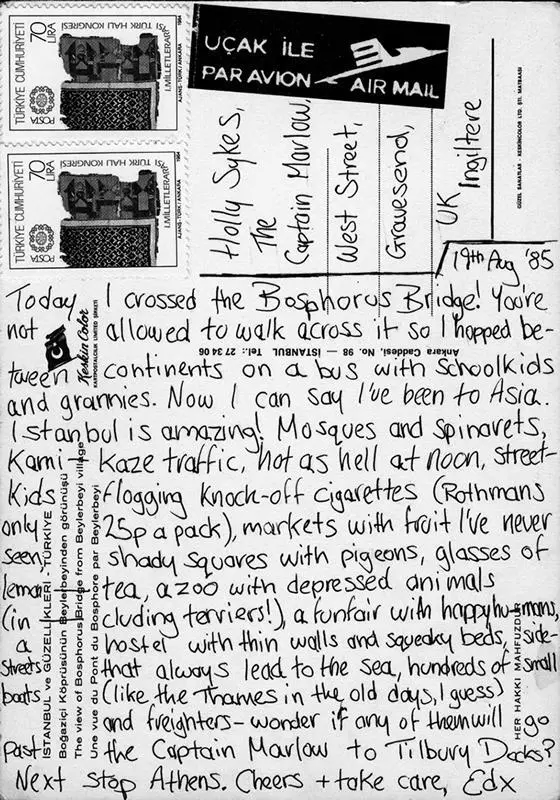 TÜRKİYE CUMHURİYETİ
70
LİRA
POSTA
I.MİLLETLERARASI
TÜRK HALI KONGRESİ
AJANS-TÜRK/ANKARA
1984
TÜRKİYE CUMHURİYETİ
70
LİRA
POSTA
I.MİLLETLERARASI
TÜRK HALI KONGRESİ
AJANS-TÜRK/ANKARA
1984
UÇAK İLE
PAR AVION
AIR MAIL
Holly Sykes,
The
Captain Marlow,
West Street,
Gravesend,
UK
Ingiltere
GÜZEL SANATLAR - KESKİNCOLOR LTD. ŞTİ. MATBAASI
19th Aug '85
Today I crossed the Bosphorus Bridge! You're
not allowed to walk across it so I hopped be-
tween continents on a bus with schoolkids
and grannies. Now I can say I've been to Asia.
Istanbul is amazing! Mosques and spinarets,
Kami-Kaze traffic, hot as hell at noon, street-
Kids flogging knock-off cigarettes (Rothmans
only 25p a pack), markets with fruit I've never
seen, shady squares with pigeons, glasses of
lemon tea, a zoo with depressed animals
(including terriers!), a funfair with happy humans,
a hostel with thin walls and squeaky beds, side-
streets that always lead to the sea, hundreds of small
boats (like the Thames in the old days, I guess)
and freighters – wonder if any of them will go
past the Captain Marlow to Tilbury Docks?
Next stop Athens. Cheers + take care, Edx
Keskin Color
KARTPOSTALCILIK LIMITED ŞİRKETİ
Ankara Caddesi, No. 98 — İSTANBUL Tel.: 27 34 06
İSTANBUL ve GÜZELLİKLERİ - TÜRKİYE
Boğaziçi Köprüsünün Beylerbeyinden görünüşü
The view of Bosphorus Bridge from Beylerbeyi village
Une vue du Pont du Bosphore par Beylerbeyi
HER HAKKI MAHFUZDUR